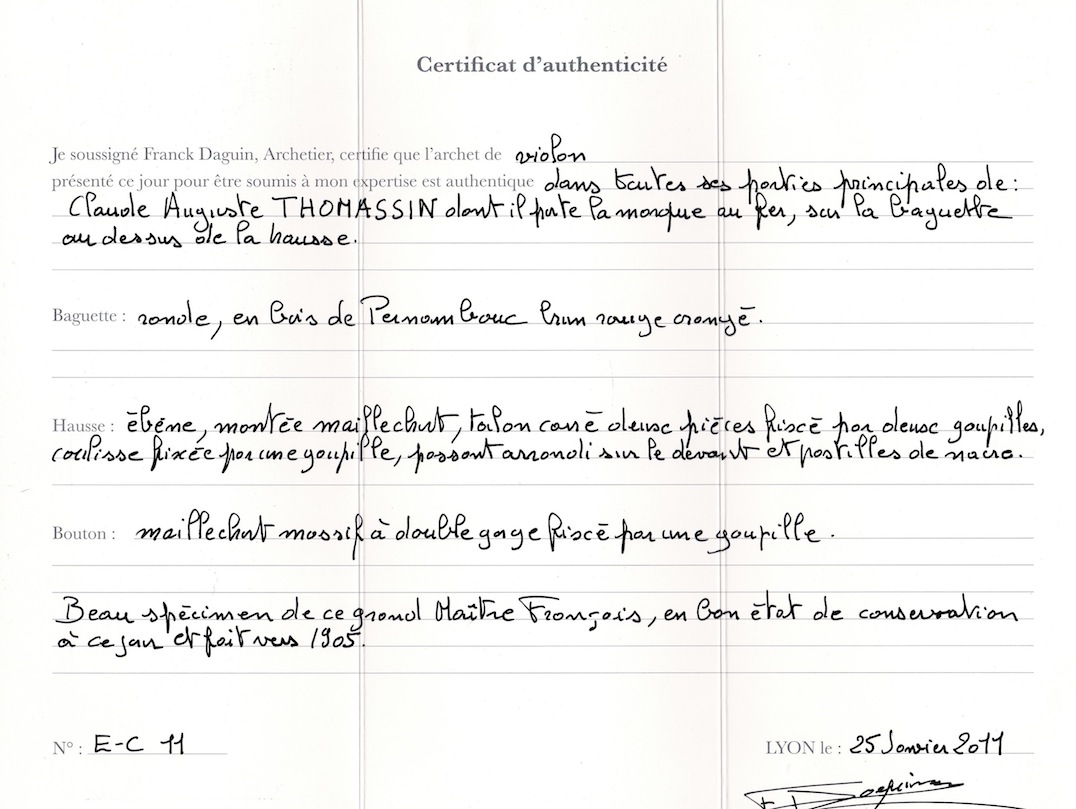 Certificat d'authenticité
Je soussigné Franck Daguin, Archetier, certifie que l'archet de violon
présenté ce jour pour être soumis à mon expertise est authentique dans toutes ses parties principales de :
Claude Auguste THOMASSIN dont il porte la marque au fer, sur la baguette
au dessus de la hausse.
Baguette : ronde, en bois de Pernambouc brun rouge orangé.
Hausse : ébène, montée maillechort, talon carré deux pièces fixé par deux goupilles,
coulisse fixée par une goupille, passant arrondi sur le devant et pastilles de nacre.
Bouton : maillechort massif à double gage fixé par une goupille.
Beau spécimen de ce grand Maître Français, en bon état de conservation
à ce jour et fait vers 1905.
N° : E-C 11
LYON le : 25 Janvier 2011